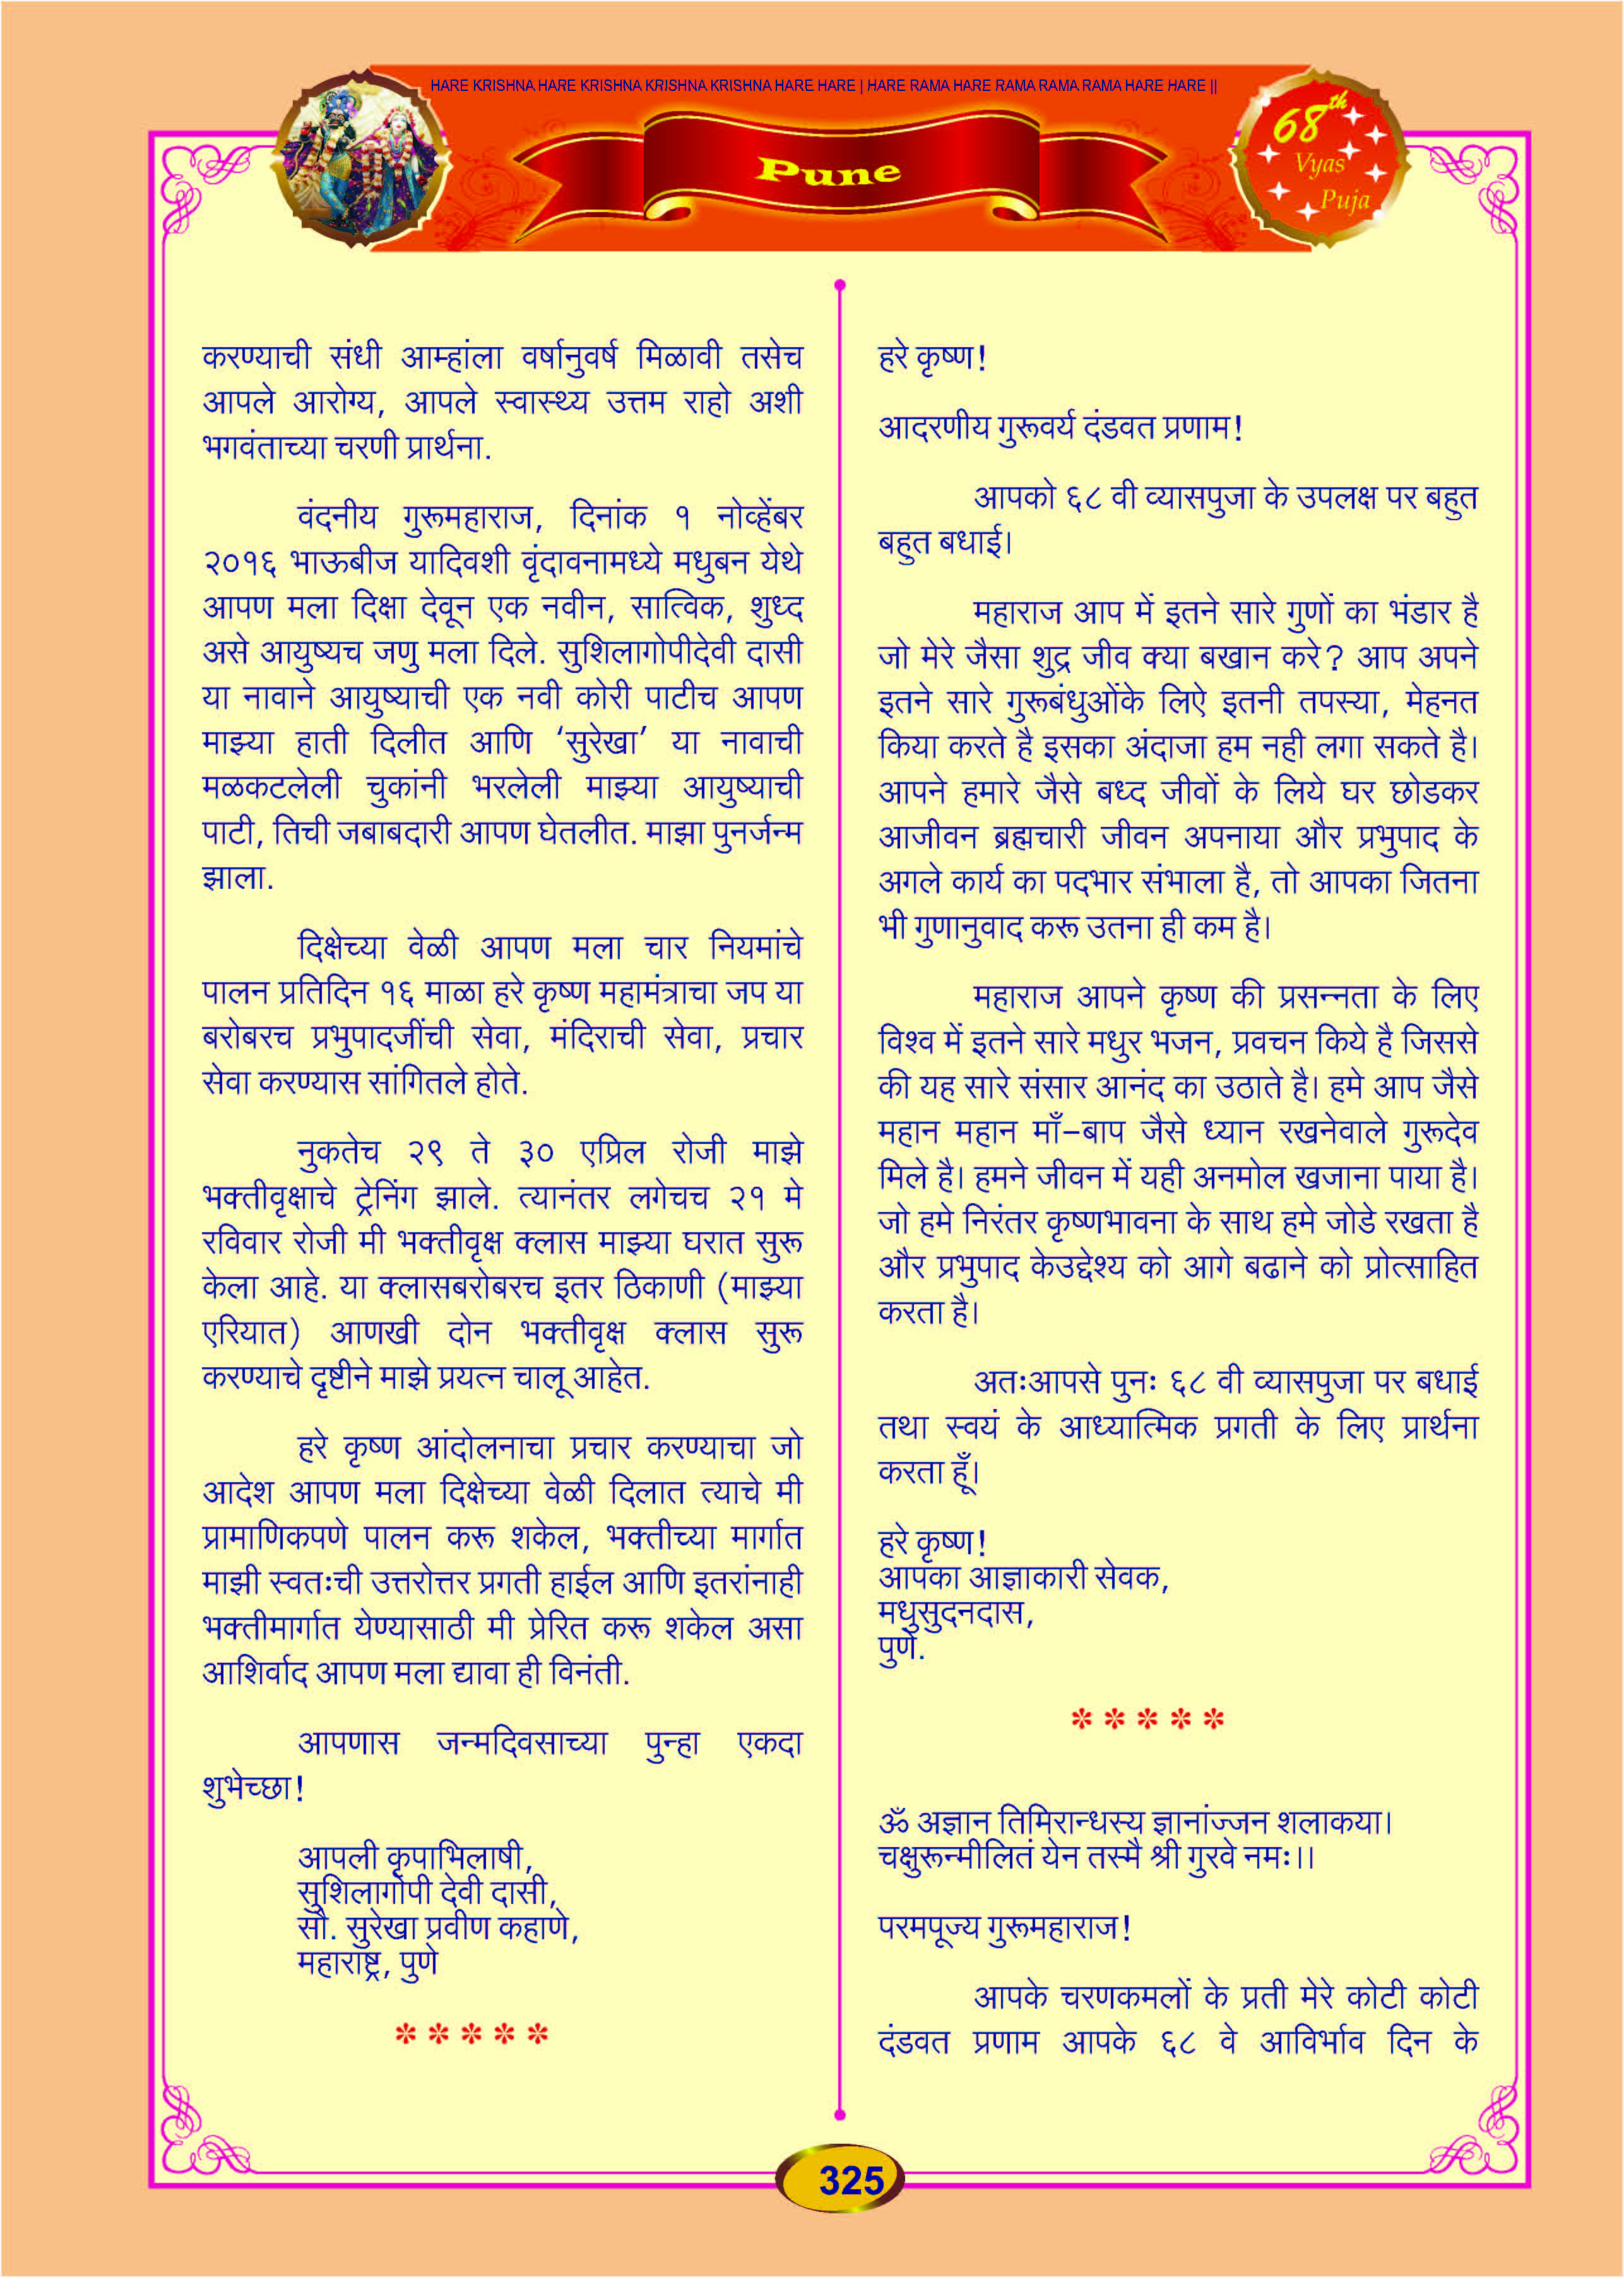 HARE KRISHNA HARE KRISHNA KRISHNA KRISHNA HARE HARE | HARE RAMA HARE RAMA RAMA RAMA HARE HARE ||
Pune
68th
Vyas
Puja
करण्याची संधी आम्हांला वर्षानुवर्ष मिळावी तसेच
आपले आरोग्य, आपले स्वास्थ्य उत्तम राहो अशी
भगवंताच्या चरणी प्रार्थना.
वंदनीय गुरूमहाराज, दिनांक १ नोव्हेंबर
२०१६ भाऊबीज यादिवशी वृंदावनामध्ये मधुबन येथे
आपण मला दिक्षा देवून एक नवीन, सात्विक, शुध्द
असे आयुष्यच जणु मला दिले. सुशिलागोपीदेवी दासी
या नावाने आयुष्याची एक नवी कोरी पाटीच आपण
माझ्या हाती दिलीत आणि ‘सुरेखा’ या नावाची
मळकटलेली चुकांनी भरलेली माझ्या आयुष्याची
पाटी, तिची जबाबदारी आपण घेतलीत. माझा पुनर्जन्म
झाला.
दिक्षेच्या वेळी आपण मला चार नियमांचे
पालन प्रतिदिन १६ माळा हरे कृष्ण महामंत्राचा जप या
बरोबरच प्रभुपादजींची सेवा, मंदिराची सेवा, प्रचार
सेवा करण्यास सांगितले होते.
नुकतेच २९ ते ३० एप्रिल रोजी माझे
भक्तीवृक्षाचे ट्रेनिंग झाले. त्यानंतर लगेचच २१ मे
रविवार रोजी मी भक्तीवृक्ष क्लास माझ्या घरात सुरू
केला आहे. या क्लासबरोबरच इतर ठिकाणी (माझ्या
एरियात) आणखी दोन भक्तीवृक्ष क्लास सुरू
करण्याचे दृष्टीने माझे प्रयत्न चालू आहेत.
हरे कृष्ण आंदोलनाचा प्रचार करण्याचा जो
आदेश आपण मला दिक्षेच्या वेळी दिलात त्याचे मी
प्रामाणिकपणे पालन करू शकेल, भक्तीच्या मार्गात
माझी स्वतःची उत्तरोत्तर प्रगती हाईल आणि इतरांनाही
भक्तीमार्गात येण्यासाठी मी प्रेरित करू शकेल असा
आशिर्वाद आपण मला द्यावा ही विनंती.
आपणास जन्मदिवसाच्या पुन्हा एकदा
शुभेच्छा!
आपली कृपाभिलाषी,
सुशिलागोपी देवी दासी,
सौ. सुरेखा प्रवीण कहाणे,
महाराष्ट्र, पुणे
* * * * *
हरे कृष्ण!
आदरणीय गुरूवर्य दंडवत प्रणाम!
आपको ६८ वी व्यासपुजा के उपलक्ष पर बहुत
बहुत बधाई।
महाराज आप में इतने सारे गुणों का भंडार है
जो मेरे जैसा शुद्र जीव क्या बखान करे? आप अपने
इतने सारे गुरूबंधुओंके लिऐ इतनी तपस्या, मेहनत
किया करते है इसका अंदाजा हम नही लगा सकते है।
आपने हमारे जैसे बध्द जीवों के लिये घर छोडकर
आजीवन ब्रह्मचारी जीवन अपनाया और प्रभुपाद के
अगले कार्य का पदभार संभाला है, तो आपका जितना
भी गुणानुवाद करू उतना ही कम है।
महाराज आपने कृष्ण की प्रसन्नता के लिए
विश्व में इतने सारे मधुर भजन, प्रवचन किये है जिससे
की यह सारे संसार आनंद का उठाते है। हमे आप जैसे
महान महान माँ–बाप जैसे ध्यान रखनेवाले गुरूदेव
मिले है। हमने जीवन में यही अनमोल खजाना पाया है।
जो हमे निरंतर कृष्णभावना के साथ हमे जोडे रखता है
और प्रभुपाद केउद्देश्य को आगे बढाने को प्रोत्साहित
करता है।
अतःआपसे पुनः ६८ वी व्यासपुजा पर बधाई
तथा स्वयं के आध्यात्मिक प्रगती के लिए प्रार्थना
करता हूँ।
हरे कृष्ण!
आपका आज्ञाकारी सेवक,
मधुसुदनदास,
पुणे.
* * * * *
ॐ अज्ञान तिमिरान्धस्य ज्ञानांज्जन शलाकया।
चक्षुरून्मीलितं येन तस्मै श्री गुरवे नमः।।
परमपूज्य गुरूमहाराज!
आपके चरणकमलों के प्रती मेरे कोटी कोटी
दंडवत प्रणाम आपके ६८ वे आविर्भाव दिन के
325